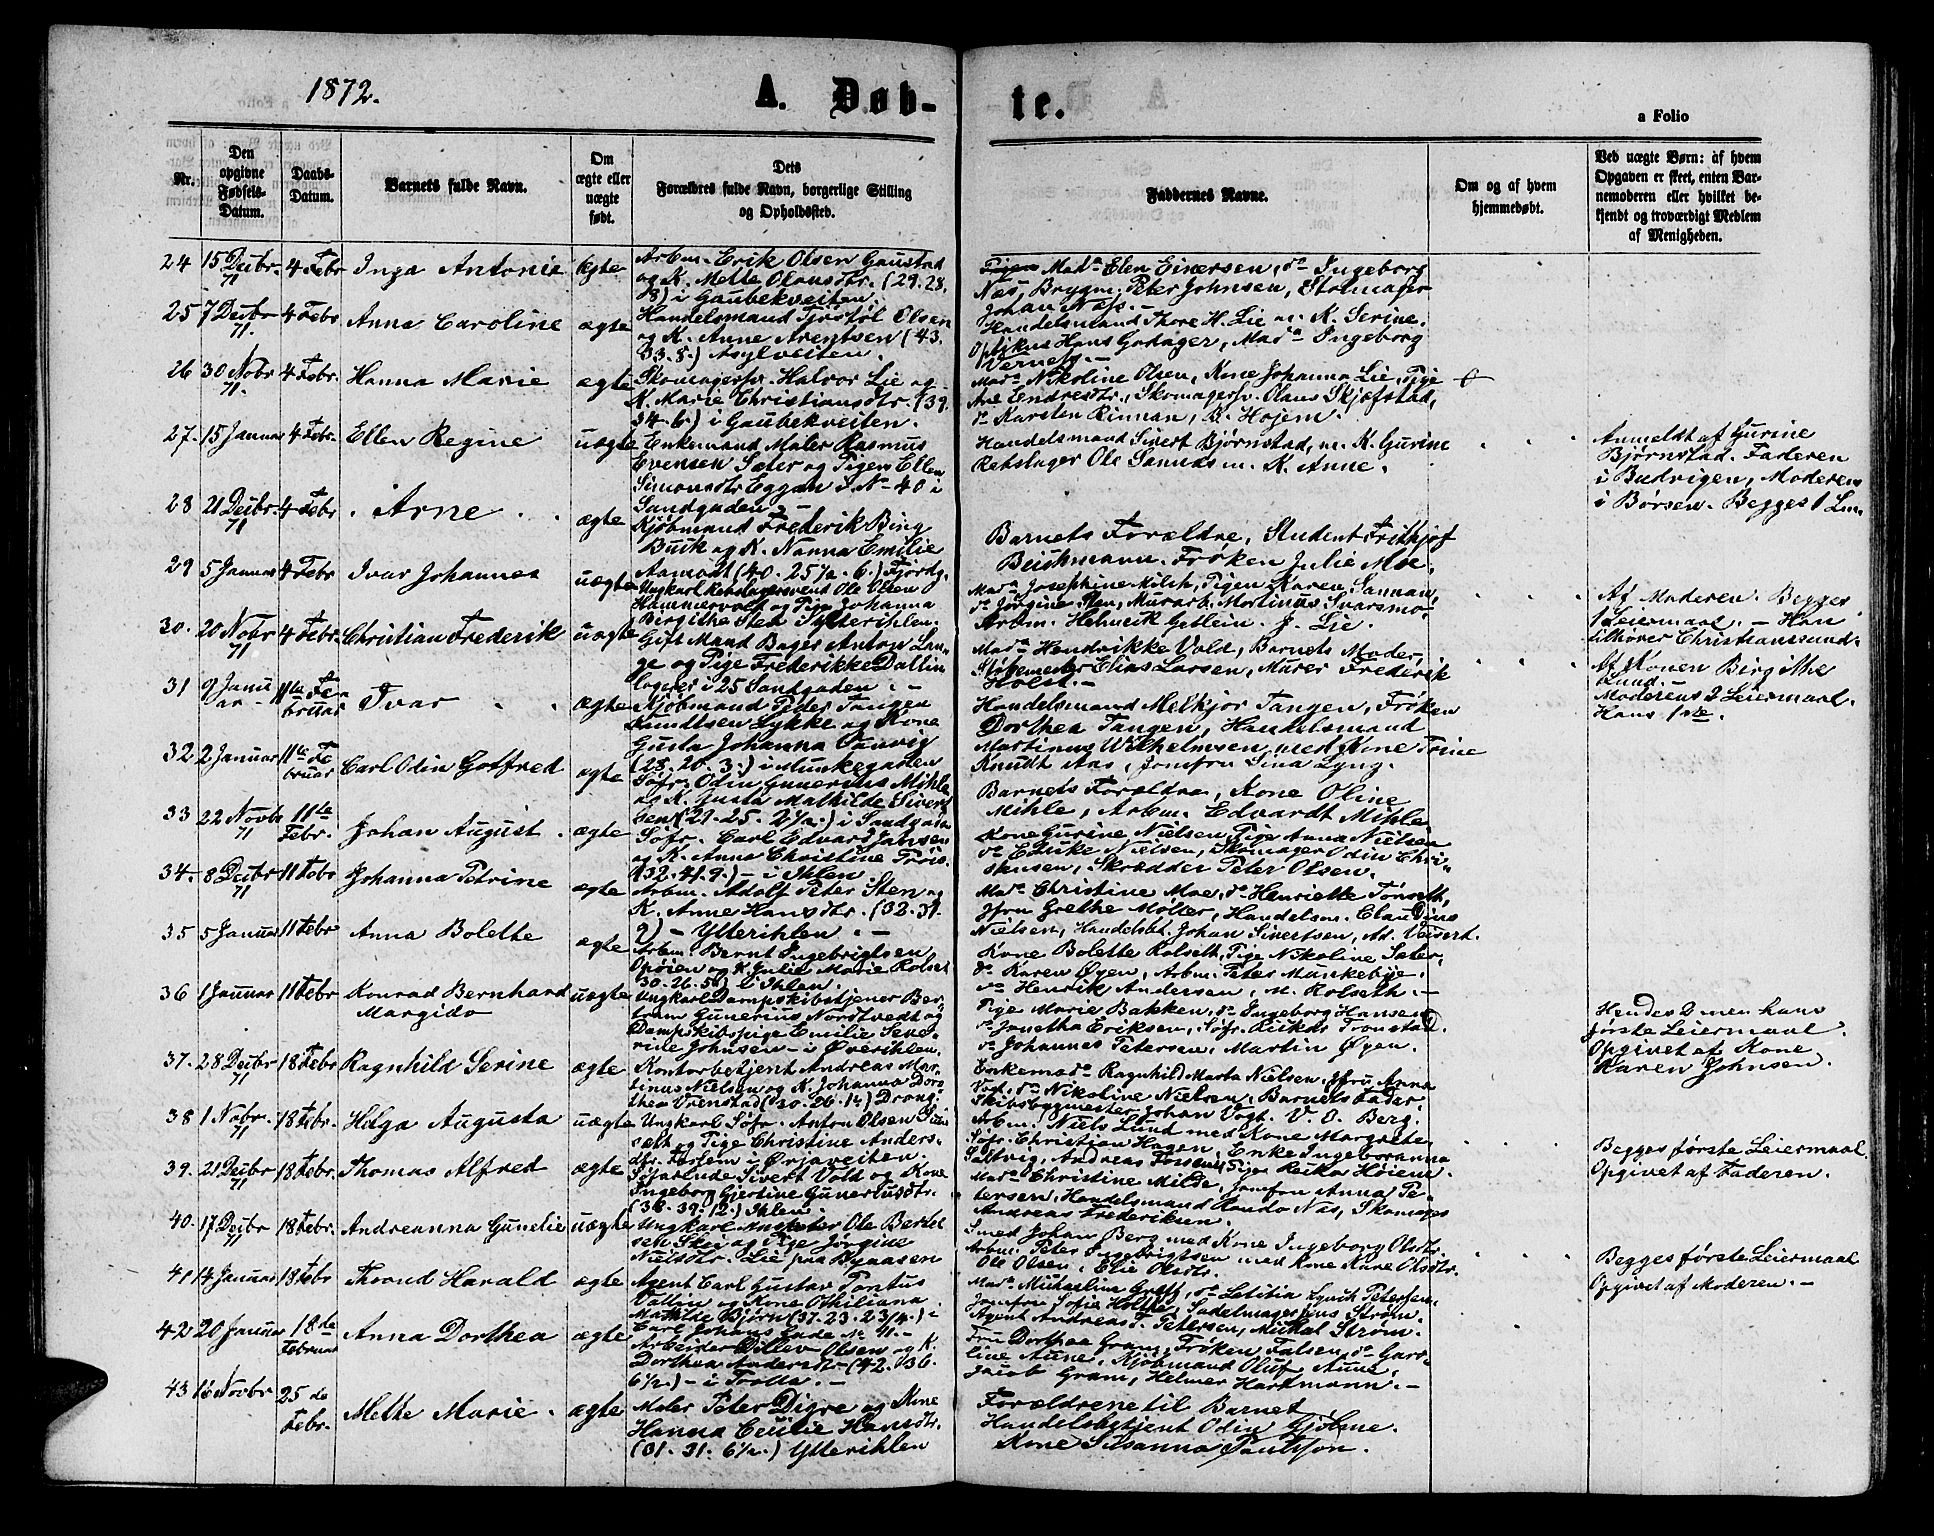 1872.
A. Døb-
te.
a Folio
Nr.
Den opgivne Fødsels-Datum.
Daabs-Datum.
Barnets fulde Navn.
Om ægte eller uægte født.
Dets Forældres fulde Navn, borgerlige Stilling og Opholdssted.
Faddernes Navne.
Om og af hvem hjemmedøbt.
Ved uægte Børn: af hvem Opgaven er skeet, enten Barnemoderen eller hvilket bekjendt og troværdigt Medlem af Menigheden.
24 15 Decbr. 71 4 Febr Inga Antonie Ægte
Arbm. Erik Olsen Gaustad
og K. Mette Olausdtr. (29. 28.
8) i Gaubekveiten.
Mad. Elen Einersen, do Ingeborg
Næs, Brygm. Peter Johnsen, Stolmager
Johan Næss.
25 7 Decbr 71. 4 Febr Anna Caroline ægte
Handelsmand Tjøstøl Olsen
og K. Anne Arentsen (43.
33. 8.) Asylveiten.
Handelsmand Thore H. Lie m. K. Serine.
Optikus Hans Godager, Mad. Ingeborg
26 30 Novbr 71. 4 Febr. Hanna Marie ægte
Skomagersv. Halvor Lie og
K. Marie Christiansdtr. (39.
34. 6.) i Gaubekveiten.
Mad. Nikoline Olsen, Kone Johanna Lie, Pige
Ane Endresdtr., Skomagersv. Olaus Skjefstad,
do Karsten Rinnan, B. Hojem.
27. 15 Januar 4 Febr. Ellen Regine uægte
Enkemand Maler Rasmus
Evensen Sæter og Pigen Ellen
Simonsdtr Eggan i No 40 i
Sandgaden.
Handelsmand Sivert Bjørnstad, m. K. Gurine
Rebslager Ole Samuels m. K. Anne.
Anmeldt af Gurine
Bjørnstad. Faderen
i Budvigen, Moderen
i Børsen. Begges 1 Lm.
28 21 Decbr. 71 4 Febr Arne ægte
Kjøbmand Frederik Bing
Buck og K. Nanna Emilie
Aamodt (40. 25½. 6.) Fjordg.
Barnets Forældre, Student Frithjof
Buchmann. Frøken Julie Moe.
29 5 Januar 4 Febr Ivar Johannes uægte
Ungkarl Rebslagersvend Ole Olsen
Hammervolt og Pige Johanna
Birgithe Sten i Ytterihlen.
Mad. Josephine Milch, Pigen Karen Sannan,
do Jørgine Sten, Murarb. Martinus Svarsmo
Arbm. Henrik Getlein. J. Lie.
Af Moderen. Begges
1 Leiermaal. Han
tilhører Christianssund.
30. 20 Novbr 71 4 Febr. Christian Frederik uægte
Gift Mand Bager Anton Lange
og Pige Frederikke Dallin
logerer i 25 Sandgaden.
Mad. Hendrikke Vold, Barnets Moder,
Støbemester Elias Larsen, Murer Frederik
Holst.
Af Konen Birgithe
Lund.
Moderens 2 Leiermaal.
Hans 1ste.
31 9 Januar 11te Februar Ivar ægte
Kjøbmand Peder Tangen
Knudtsen Lykke og Kone
Gusta Johanna Vanvig
(28. 20. 3.) i Munkegaden
Handelsmand Melkjor Tangen, Frøken
Dorthea Tangen, Handelsmand
Martinus Wilhelmsen, med Kone Trine
Knudt Aas, Jomfru Sina Lyng.
32 2 Januar 11te Februar Carl Odin Gotfred ægte
Søfr. Odin Gunerius Mihle
og K. Justa Mathilde Sivert
sen (21. 25. 2½.) i Sandgaden
Barnets Forældre, Kone Oline
Mihle, Arbm. Edvardt Mihle.
33 22 Novbr 71 11te Febr. Johan August ægte
Søfr. Carl Edvard Jansen
og K. Anna Christine Friis
(32. 41. 9.) i Ihlen.
Kone Gurine Nielsen, Pige Anna Nielsen
do Eluke Nielsen, Skomager Odin Chri-
stensen, Skrædder Peter Olsen.
34. 8 Decbr 71 11 Febr. Johanna Petrine ægte
Arbm. Adolf Peter Sten og
K. Anne Hansdtr. (32. 31.
2) Ytterihlen.
Mad. Christine Moe, do Henriette Tønseth,
Jfru Grethe Møller, Handelsm. Claudius
Nielsen, Handelsbt. Johan Sivertsen, Ad. Veisert.
35 5 Januar 11 Febr Anna Bolette ægte
Arbm. Bernt Ingebrigtsen
Opøien og K. Julie Marie Rolset
30. 26. 5) i Ihlen.
Kone Bolette Rolseth, Pige Nikoline Sæter.
do Karen Øyen, Arbm. Peter Munkebye.
do Henrik Andersen, M. Rolseth.
36 1 Januar 11 Febr Konrad Bernhard
Margido uægte
Ungkarl Dampskibstjener Ber-
tram Gunerius Nordtvedt og
Dampskibspige Emilie Seve-
rine Johnsen i Øverihlen.
Pige Marie Bakken, do Ingeborg Hansen
do Janetha Eriksen, Søfr. Rikds Tronstad
do Johannes Petersen, Martin Øyen.
Hendes 2 men hans
første Leiermaal.
Opgivet af Kone
Karen Johnsen.
37. 28 Decbr 71 18 Febr Ragnhild Serine ægte
Kontorbetjent Andreas Mar-
tinus Nielsen og K. Johanna Doro
thea Vrenstad (30. 26. 1½) Drong.
Enkemad. Ragnhild Marta Nielsen, Jfru Anna
Vod, do Nikoline Nielsen, Barnets Fader
Skibsbygmester Johan Vogt. V. O. Berg.
38 1 Novbr. 71 18 Febr. Helga Augusta uægte
Ungkarl Søfr. Anton Olsen
og Pige Christine Anders-
dtr. Forsem i Ørjaveiten.
Arbm. Niels Lund med Kone Margrete
Søfr. Christian Hagen, Enke Ingeboranna
Saltvig, Andreas Forsem, Pige Rikka Høiem
Begges første Leiermaal
Opgivet af Faderen.
39. 21 Decbr 71 18 Febr. Thomas Alfred ægte
Søfarende Sivert Vold og Kone
Ingeborg Gjertine Gunerusdtr.
(36. 39. 12.) Ihlen.
Mad. Christine Milde, Jomfru Anna Pe-
tersen, Handelsmand Rondo Næs, Skomager
Andreas Frederiksen.
40. 17 Decbr 71 18 Febr. Andreanna Gunelie uægte
Ungkarl Ole Bertel
sen Skei og Pige Jørgine
Nielsdtr. Lie paa Bynæssen
Smed Johan Berg med Kone Ingeborg Olsdtr.
Arbm. Peter Ingebrigtsen med Kone Kure Olsdtr.
Ole Olsen, Elie Olsdtr.
Begges første Leiermaal
Opgivet af Moderen.
41 14 Januar 18 Febr Thrond Harald ægte
Agent Carl Gustav Pontus
Vallin og Kone Othiliana
Matilde Bjørn (37. 23. 23/4.) i
Carl Johans Gade No 11.
Mad. Michaeline Greff, do Letitia Lynik Petersen,
Jomfru Sofie Holthe, Sadelmager Jens Strøm.
Agent Andreas J. Petersen, Michal Strøm.
42 20 Januar 18de Februar Anna Dorthea ægte
Arbeider Ditlev Olsen og K.
Dorthea Andersdtr (42. 36.
6½.) i Trolla.
Fru Dorthea Gram, Frøken Falsen, do Caro-
line Aune, Kjøbmand Oluf Aune,
Jacob Gram, Helmer Hartmann.
43 16 Novbr 25de Febr. Mette Marie ægte
Maler Peter Digre og Kone
Hanna Cecilie Hansdtr.
(31. 31. 6½.) Ytterihlen
Forældrene til Barnet
Handelsbetjent Odin Gjølme.
Kone Susanna Paulsson.